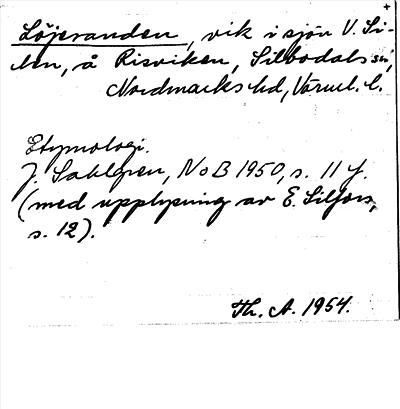 Löjeranden, vik i sjön V. Si-
len, å Risviken, Silbodals sn,
Nordmarks hd, Värml. l.
Etymologi.
J. Sahlgren, NoB 1950, s. 11 f.
(med upplysning av E. Silfors,
s. 12).
Th. A. 1954.